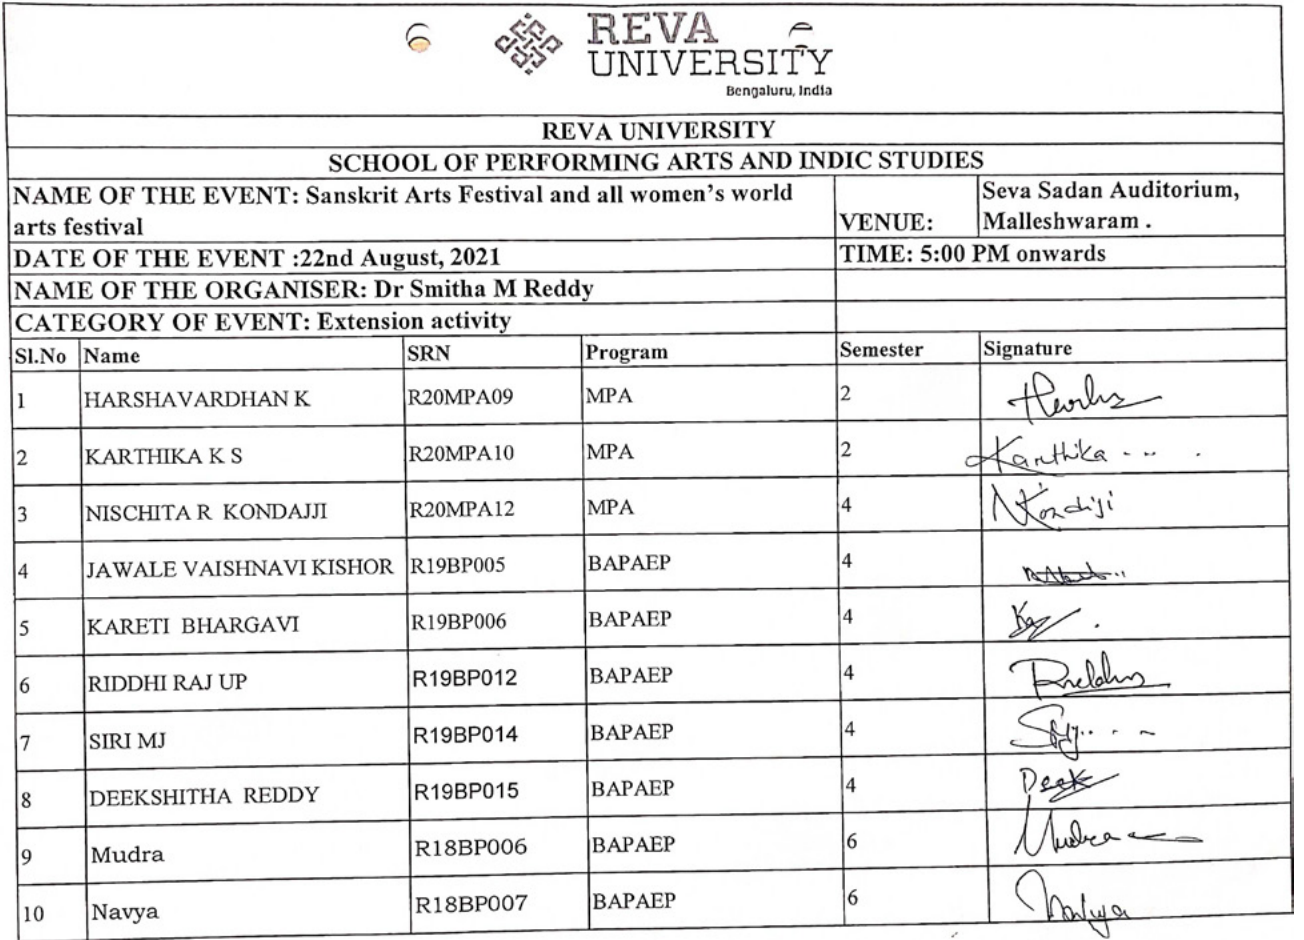 REVA
UNIVERSITY
Bengaluru, India
REVA UNIVERSITY
SCHOOL OF PERFORMING ARTS AND INDIC STUDIES
NAME OF THE EVENT: Sanskrit Arts Festival and all women's world
arts festival
VENUE:
Seva Sadan Auditorium,
Malleshwaram .
DATE OF THE EVENT :22nd August, 2021
TIME: 5:00 PM onwards
NAME OF THE ORGANISER: Dr Smitha M Reddy
CATEGORY OF EVENT: Extension activity
Sl.No Name SRN Program Semester Signature
1 HARSHAVARDHAN K R20MPA09 MPA 2
2 KARTHIKA K S R20MPA10 MPA 2 Karthika
3 NISCHITA R KONDAJJI R20MPA12 MPA 4
4 JAWALE VAISHNAVI KISHOR R19BP005 BAPAEP 4
5 KARETI BHARGAVI R19BP006 BAPAEP 4
6 RIDDHI RAJ UP R19BP012 BAPAEP 4
7 SIRI MJ R19BP014 BAPAEP 4
8 DEEKSHITHA REDDY R19BP015 BAPAEP 4 Deek
9 Mudra R18BP006 BAPAEP 6 Mudra
10 Navya R18BP007 BAPAEP 6 Navya